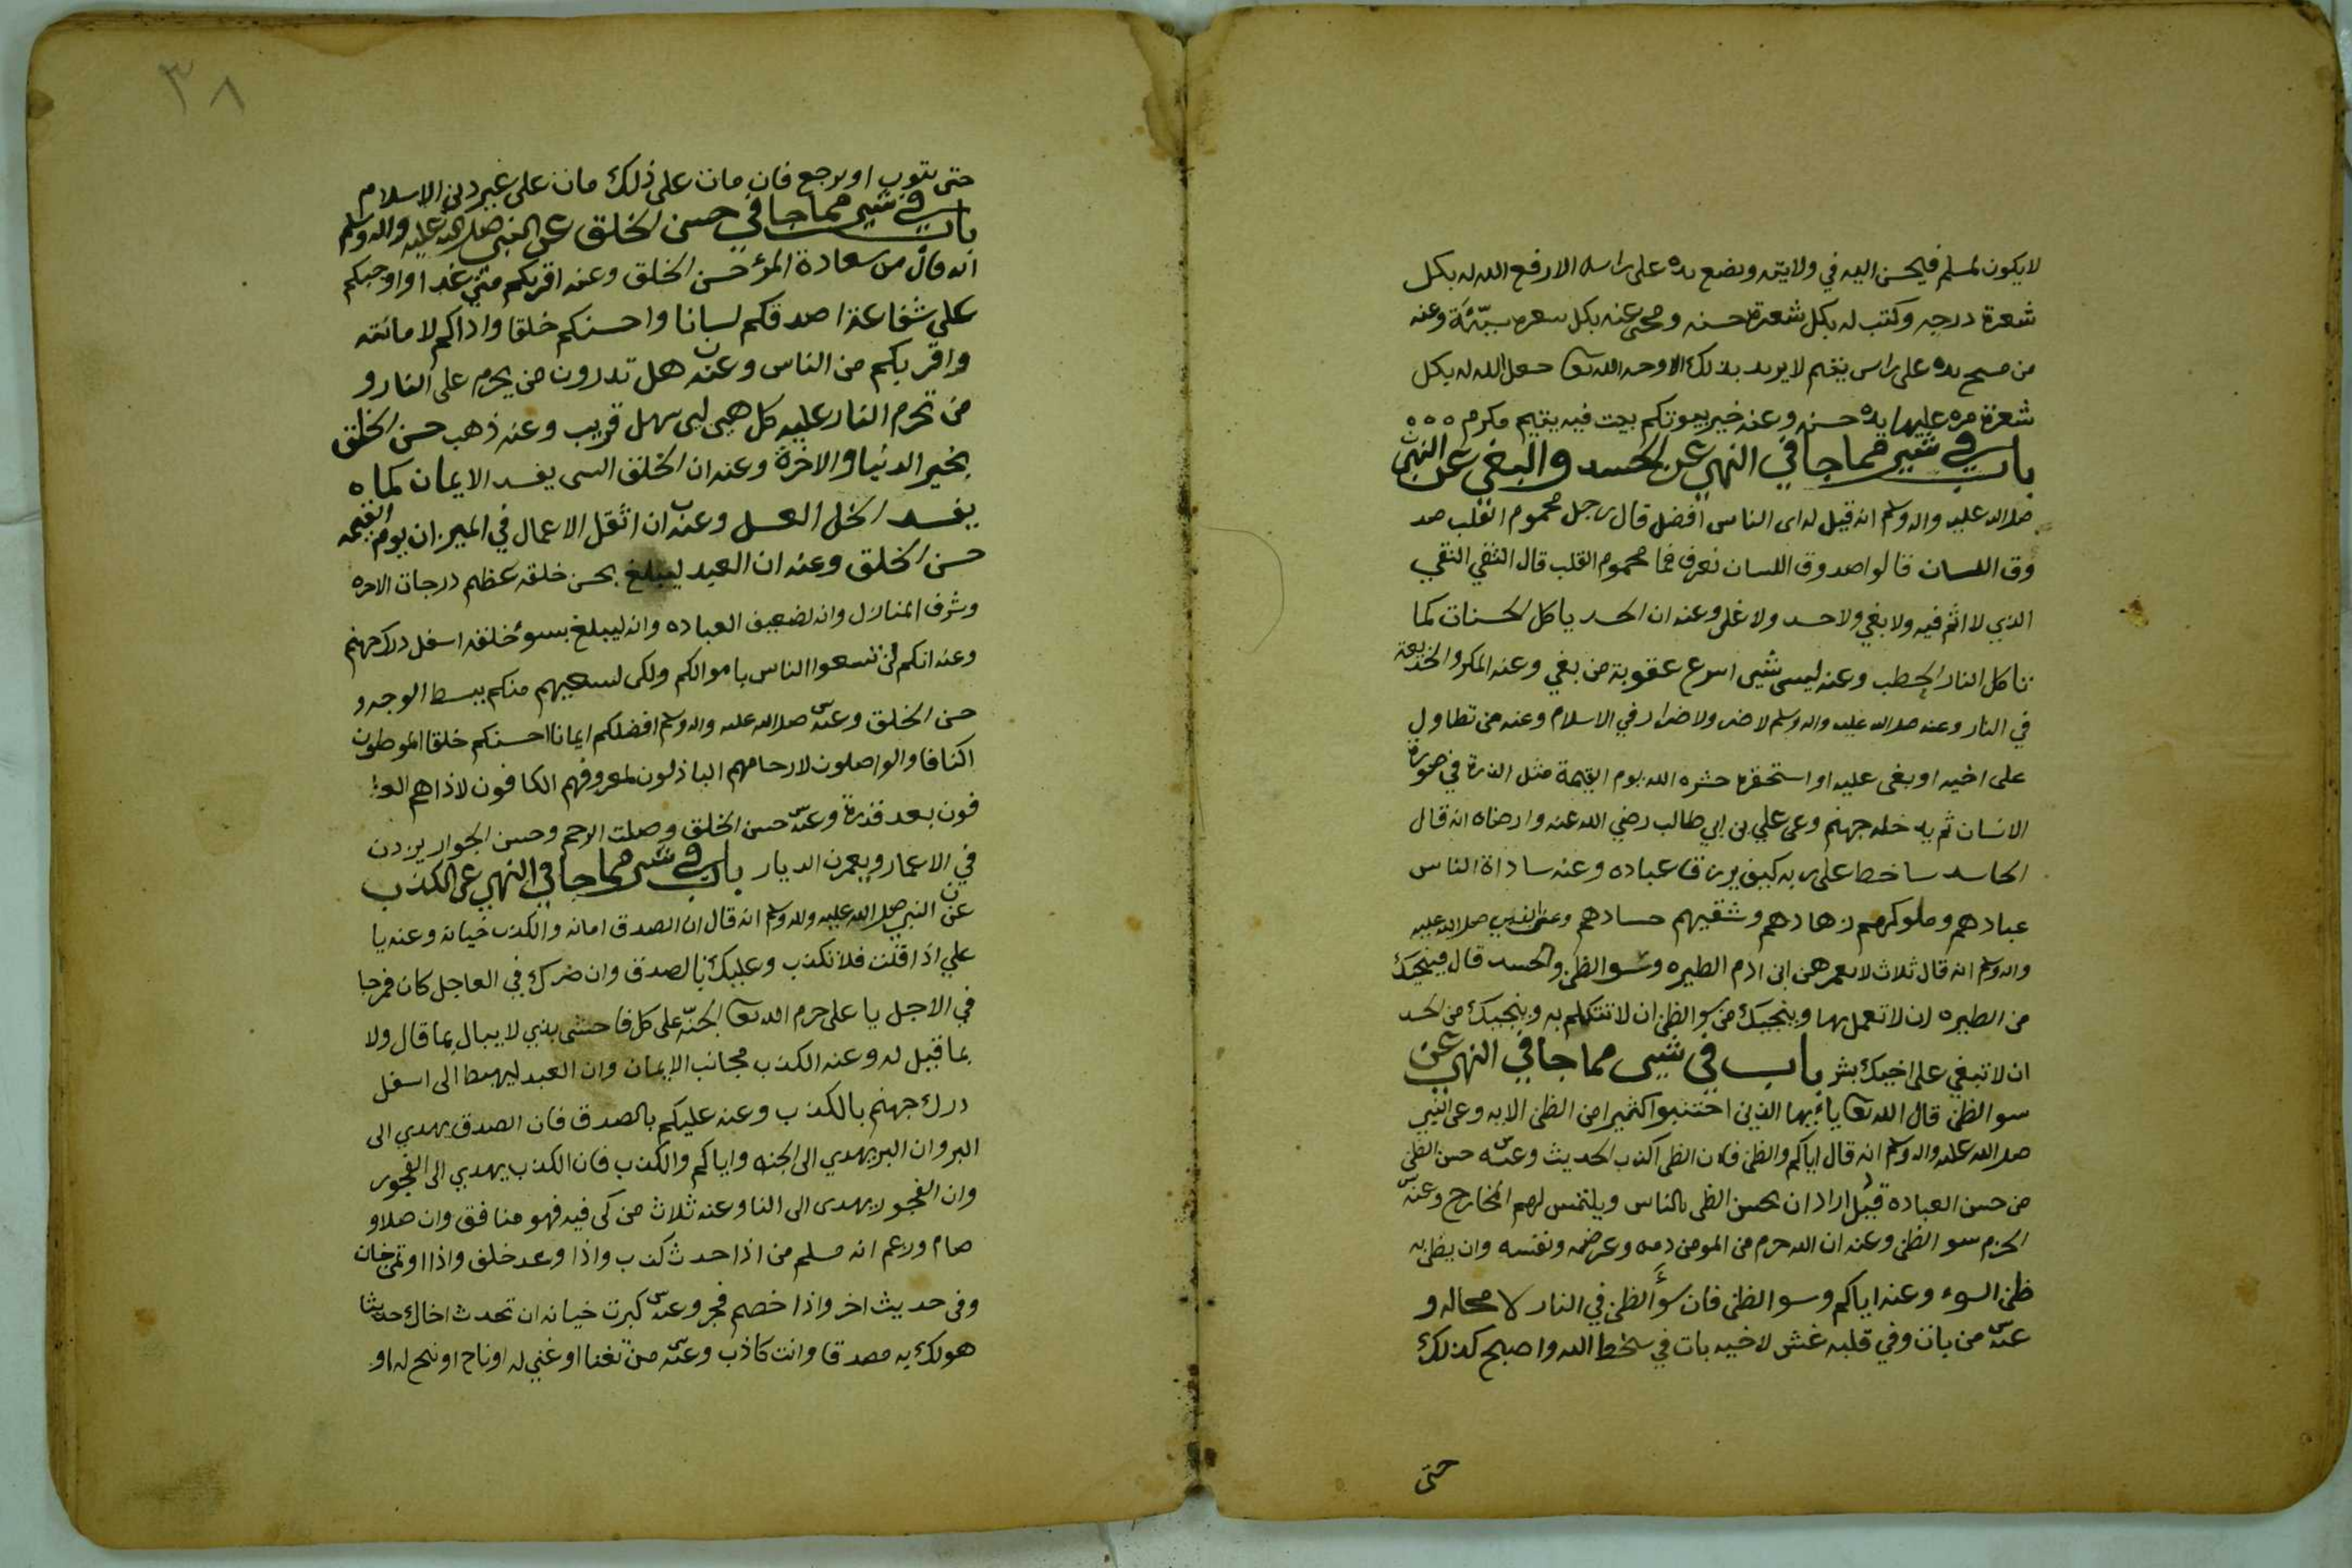 لا يكون لمسلم فيحسن اليه في ولايته ويضع يده على راسه الا رفع الله له بكل
شعرة درجه وكتب له بكل شعرة حسنه ومحى عنه بكل شعره سيّئة وعنه
من مسح يده على راس يتيم لا يريد بذلك الا وجه الله تعا جعل الله له بكل
شعرة مره عليها يده حسنه وعنه خير بيوتكم بيت فيه يتيم مكرم ه ه ه
باب في شيى مما جا في النهي عن الحسد والبغي عن النبي
صلى الله عليه واله وسلم انه قيل له اى الناس افضل قال رجل محموم القلب صد
وق اللسان قالوا صدوق اللسان نعرف فما محموم القلب قال التقي النقي
الذي لا اثم فيه ولا بغي ولا حسد ولا غل وعنه ان الحسد ياكل الحسنات كما
تاكل النار الحطب وعنه ليس شيى اسرع عقوبة من بغي وعنه المكر والخديعة
في النار وعنه صلى الله عليه واله وسلم لا ضر ولا ضرار في الاسلام وعنه من تطاول
على اخيه او بغى عليه او استحقره حشره الله يوم القيمة مثل الذرة في صورة
الانسان ثم يدخله جهنم وعى علي بن ابي طالب رضي الله عنه وارضاه انه قال
الحاسد ساخط على ربه كيف يرزق عباده وعنه ساداة الناس
عبادهم وملوكهم زهادهم وشقيهم حسادهم وعن النبي صلى الله عليه
واله وسلم انه قال ثلاث لا يعمرهن ابن ادم الطيره وسوا الظن والحسد قال فينجيك
من الطيره ان لا تعمل بها وينجيك من سوا الظن ان لا تتكلم به وينجيك من الحسد
ان لا تبغي على اخيك بشر باب في شيى مما جا في النهي عن
سوا الظن قال الله تعا ياءيها الذين اجتنبوا كثيرا من الظن الايه وعى النبي
صلى الله عليه واله وسلم انه قال اياكم والظن فان الظن اكذب الحديث وعنه حسن الظن
من حسن العباده قيل اراد ان يحسن الظن بالناس ويلتمس لهم المخارج وعنه
الحزم سوا الظن وعنه ان الله حرم من المومن دمه وعرضه ونفسه وان يظن به
ظن السوء وعنه اياكم وسوا الظن فان سوأ الظن في النار لا محاله و
عنه من بات وفي قلبه غش لاخيه بات في سخط الله واصبح كذلك
حتى
٣٨
حتى يتوب او يرجع فان مات على ذلك مات على غير دين الاسلام
باب في شيى مما جا في حسن الخلق عن النبي صلى الله عليه واله وسلم
انه قال من سعادة المرء حسن الخلق وعنه اقربكم مني غدا واوجبكم
على شفاعة اصدقكم لسانا واحسنكم خلقا واداكم لامانته
واقربكم من الناس وعنه هل تدرون من يحرم على النار و
من تحرم النار عليه كل هين لين سهل قريب وعنه ذهب حسن الخلق
بخير الدنيا والاخرة وعنه ان الخلق السى يفسد الايمان كما ه
يفسد الخل العسل وعنه ان اثقل الاعمال في الميزان يوم القيمه
حسن الخلق وعنه ان العبد ليبلغ بحسن خلقه عظيم درجات الاخره
وشرف المنازل وانه لضعيف العباده وانه ليبلغ بسوء خلقه اسفل درك جهنم
وعنه انكم لن تسعوا الناس باموالكم ولكن ليسعيهم منكم ببسط الوجه و
حسن الخلق وعنه صلى الله عليه واله وسلم افضلكم ايمانا احسنكم خلقا الموطون
اكنافا والواصلون لارحامهم الباذلون لمعروفهم الكافون لاذاهم العا
فون بعد قدرة وعنه حسن الخلق وصلت الرحم وحسن الجوار يزدن
في الاعمار ويعمرن الديار باب في شيى مما جا في النهي عن الكذب
عن النبي صلى الله عليه واله وسلم انه قال ان الصدق امانه والكذب خيانه وعنه يا
علي اذا قلت فلا تكذب وعليك بالصدق وان ضرك في العاجل كان فرجا
في الاجل يا على حرم الله تعا الجنّه على كل فاحش بذي لا يبال بما قال ولا
بما قيل له وعنه الكذب مجانب الايمان وان العبد ليهبط الى اسفل
درك جهنم بالكذب وعنه عليكم بالصدق فان الصدق يهدي الى
البر وان البر يهدي الى الجنه واياكم والكذب فان الكذب يهدي الى الفجور
وان الفجو لا يهدى الى النا وعنه ثلاث من كن فيه فهو منافق وان صلا و
صام وزعم انه مسلم من اذا حدث كذب واذا وعد خلف واذا اوتمن خان
وفى حديث اخر واذا خصم فجر وعنه كبرت خيانه ان تحدث اخاك حديثا
هو لك به مصدقا وانت كاذب وعنه من تغنا او غني له او ناح او نيح له او